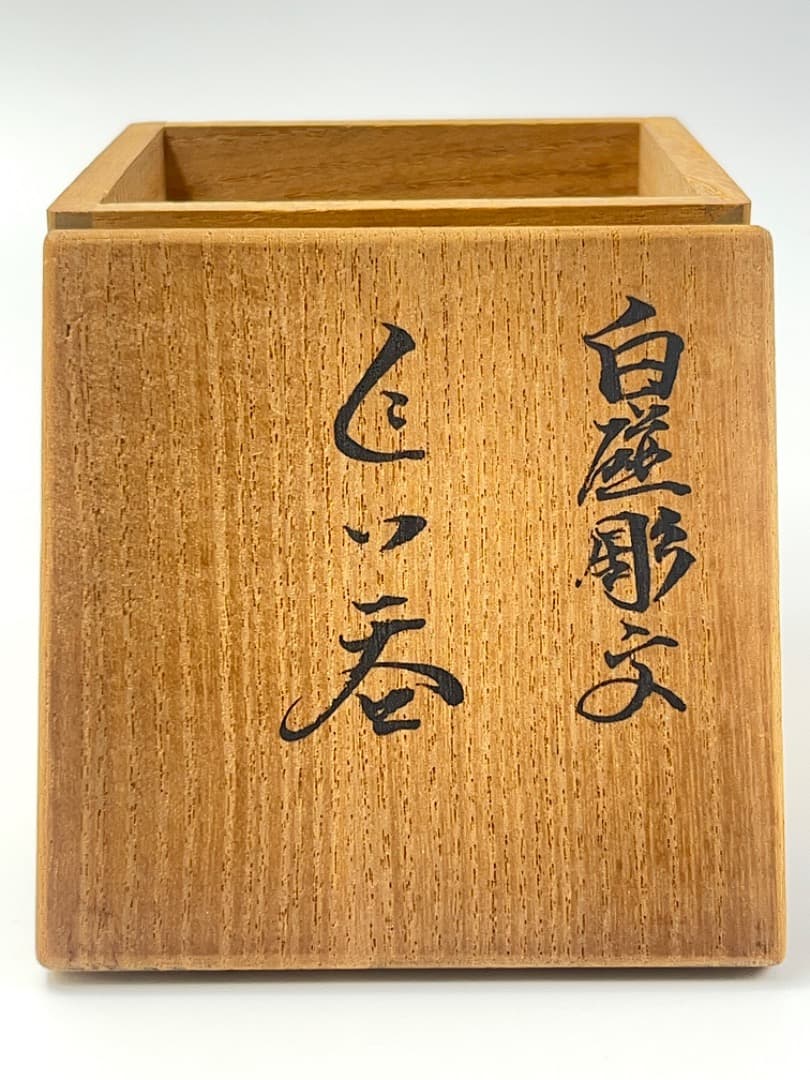 白磁彫文
ぐい呑